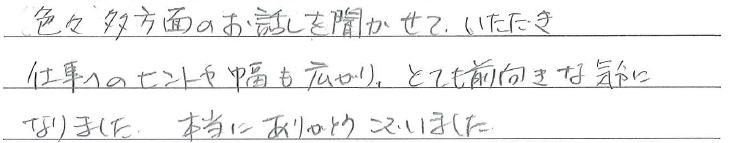 色々 多方面のお話しを聞かせて、いただき
仕事へのヒントや幅も広がり、とても前向きな気分に
なりました. 本当にありがとうございました